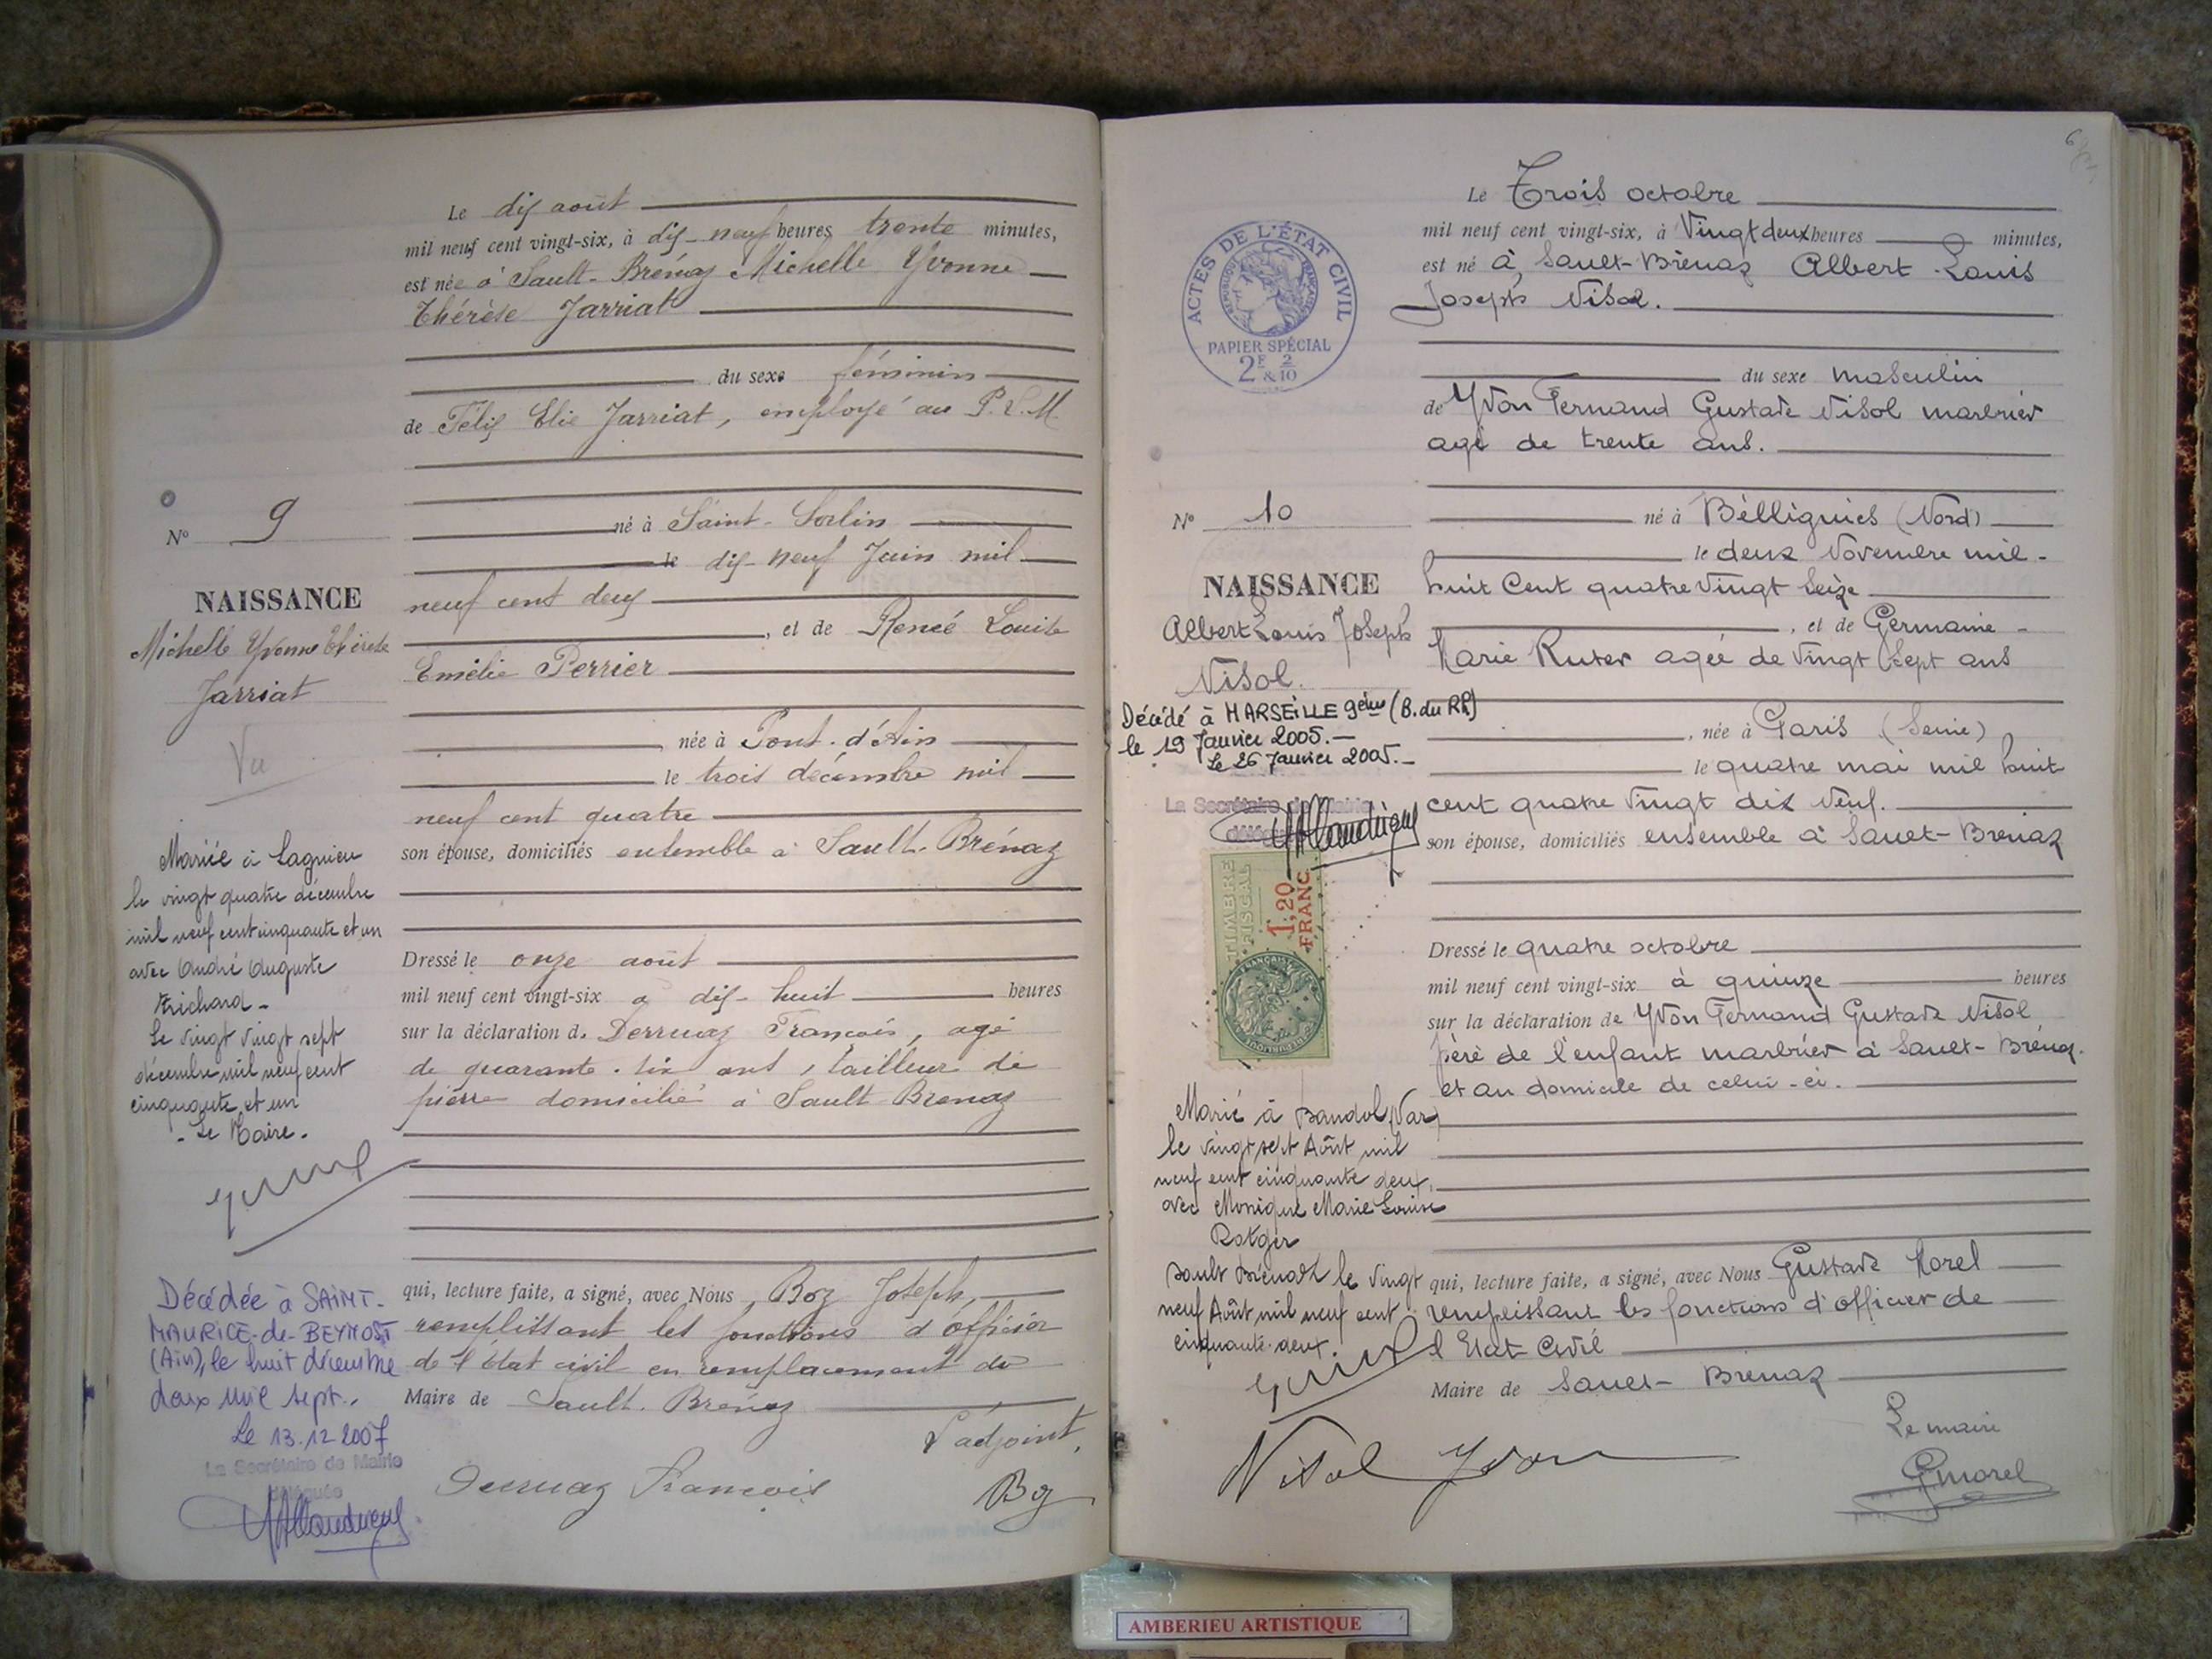 Le dix août
mil neuf cent vingt-six, à dix-neuf heures trente minutes,
est née à Sault-Brénaz Michelle Yvonne
Thérèse Jarriat
du sexe féminin
de Félix Elie Jarriat, employé au P.L.M.
né à Saint-Sorlin
le dix-neuf Juin mil
neuf cent deux
, et de Renée Louise
Emélie Perrier
, née à Pont-d'Ain
le trois décembre mil
neuf cent quatre
son épouse, domiciliés ensemble à Sault-Brénaz
Dressé le onze août
mil neuf cent vingt-six à dix-huit heures
sur la déclaration de Derruaz François, agé
de quarante-six ans, tailleur de
pierre domicilié à Sault-Brenaz
qui, lecture faite, a signé, avec Nous Boz Joseph,
remplissant les fonctions d'officier
de l'état civil en remplacement du
Maire de Sault-Brénaz
L'adjoint,
Derruaz François
Boz
N° 9
NAISSANCE
Michelle Yvonne Thérèse
Jarriat
Vu
Mariée à Lagnieu
le vingt quatre décembre
mil neuf cent cinquante et un
avec André Auguste
Le vingt vingt sept
décembre mil neuf cent
cinquante et un
- Le Maire -
Décédée à SAINT-
MAURICE-de-BEYNOST
(Ain), le huit décembre
deux mil sept.
Le 13.12.2007
La Secrétaire de Mairie
déléguée
Le Trois octobre
mil neuf cent vingt-six, à Vingt deux heures minutes,
est né à Sault-Brénaz Albert Louis
Joseph Nisol.
du sexe masculin
de Yvon Fernand Gustave Nisol marbrier
agé de trente ans.
né à Béllignies (Nord)
le deux Novembre mil
huit Cent quatre vingt seize
, et de Germaine
Marie Ruter agée de vingt sept ans
, née à Paris (Seine)
le quatre mai mil huit
cent quatre vingt dix neuf.
son épouse, domiciliés ensemble à Sault-Brénaz
Dressé le quatre octobre
mil neuf cent vingt-six à quinze heures
sur la déclaration de Yvon Fernand Gustave Nisol
père de l'enfant marbrier à Sault-Brénaz
et au domicile de celui-ci.
qui, lecture faite, a signé, avec Nous Gustave Morel
remplissant les fonctions d'officier de
l'Etat Civil
Maire de Sault-Brenaz
Le maire
GMorel
Nisol Yvon
ACTES DE L'ÉTAT CIVIL
RÉPUBLIQUE FRANÇAISE
PAPIER SPÉCIAL
2F 2
& 10
N° 10
NAISSANCE
Albert Louis Joseph
Nisol.
Décédé à MARSEILLE 9ème (B. du Rh)
le 19 Janvier 2005.-
Le 26 Janvier 2005.-
La Secrétaire de Mairie
TIMBRE
FISCAL
1,20
FRANC
Marié à Bandol (Var)
le vingt sept Août mil
neuf cent cinquante deux,
avec Monique Marie Louise
Rotger
Sault Brénaz le vingt
neuf Août mil neuf cent
cinquante-deux.
AMBERIEU ARTISTIQUE